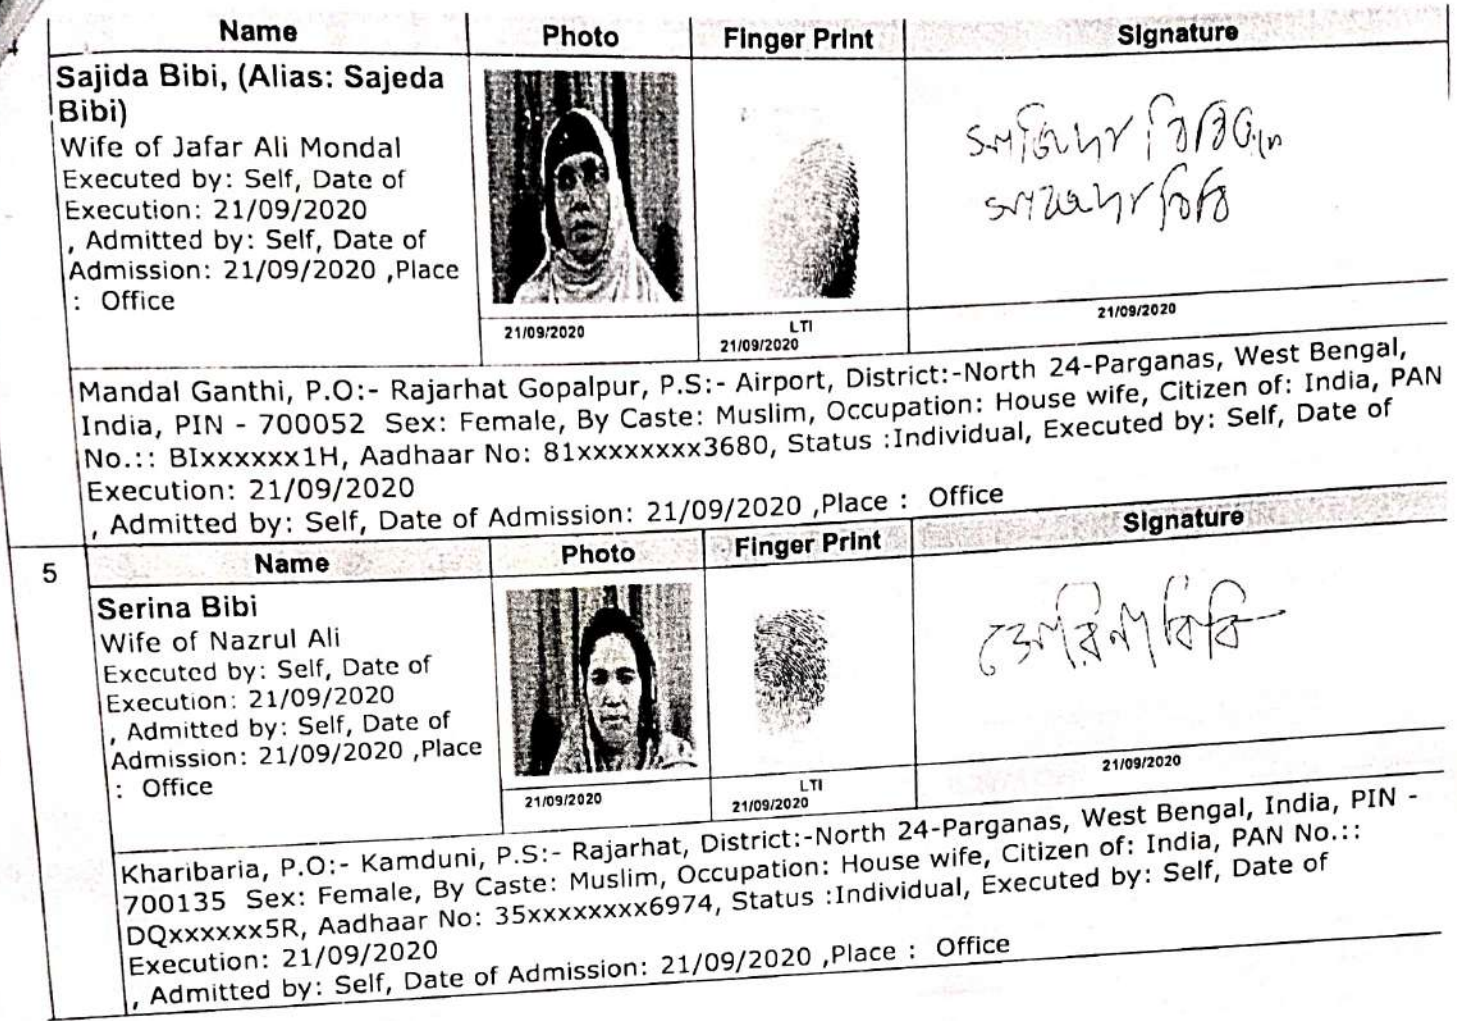 Name Photo Finger Print Signature
Sajida Bibi, (Alias: Sajeda
Bibi)
Wife of Jafar Ali Mondal
Executed by: Self, Date of
Execution: 21/09/2020
, Admitted by: Self, Date of
Admission: 21/09/2020 ,Place
: Office
বিবি
21/09/2020
LTI
21/09/2020
21/09/2020
Mandal Ganthi, P.O:- Rajarhat Gopalpur, P.S:- Airport, District:-North 24-Parganas, West Bengal,
India, PIN - 700052 Sex: Female, By Caste: Muslim, Occupation: House wife, Citizen of: India, PAN
No.:: BIxxxxxx1H, Aadhaar No: 81xxxxxxxx3680, Status :Individual, Executed by: Self, Date of
Execution: 21/09/2020
, Admitted by: Self, Date of Admission: 21/09/2020 ,Place : Office
5 Name Photo Finger Print Signature
Serina Bibi
Wife of Nazrul Ali
Executed by: Self, Date of
Execution: 21/09/2020
, Admitted by: Self, Date of
Admission: 21/09/2020 ,Place
: Office
বিবি
21/09/2020
LTI
21/09/2020
21/09/2020
Kharibaria, P.O:- Kamduni, P.S:- Rajarhat, District:-North 24-Parganas, West Bengal, India, PIN -
700135 Sex: Female, By Caste: Muslim, Occupation: House wife, Citizen of: India, PAN No.::
DQxxxxxx5R, Aadhaar No: 35xxxxxxxx6974, Status :Individual, Executed by: Self, Date of
Execution: 21/09/2020
, Admitted by: Self, Date of Admission: 21/09/2020 ,Place : Office